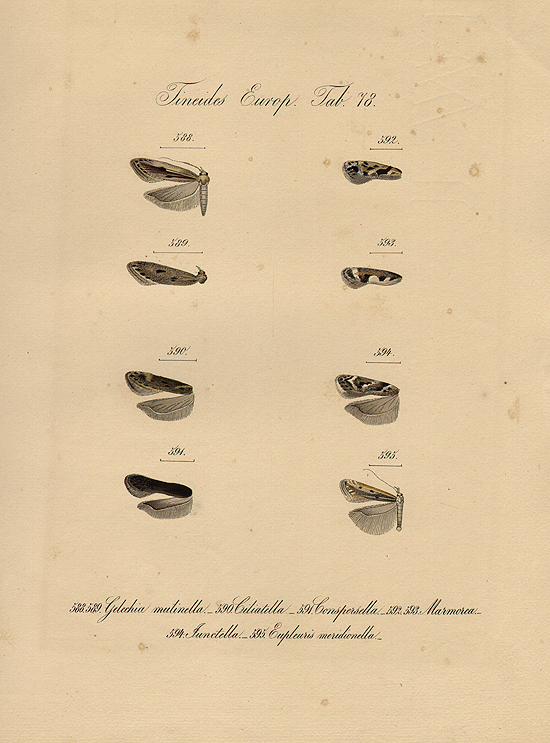 Tineides Europ. Tab. 78.
588.
592.
589.
593.
590.
594.
591.
595.
588.589. Gelechia mulinella._ 590 Ciliatella _ 591 Conspersella _ 592. 593. Marmorea._
594. Junctella._ 595. Eupleuris meridionella_